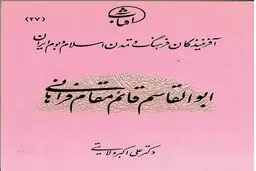 (۲۷)
آفرینندگان فرهنگ و تمدن اسلام و بوم ایران
ابوالقاسم قائم مقام فراهانی
دکتر علی اکبر ولایتی